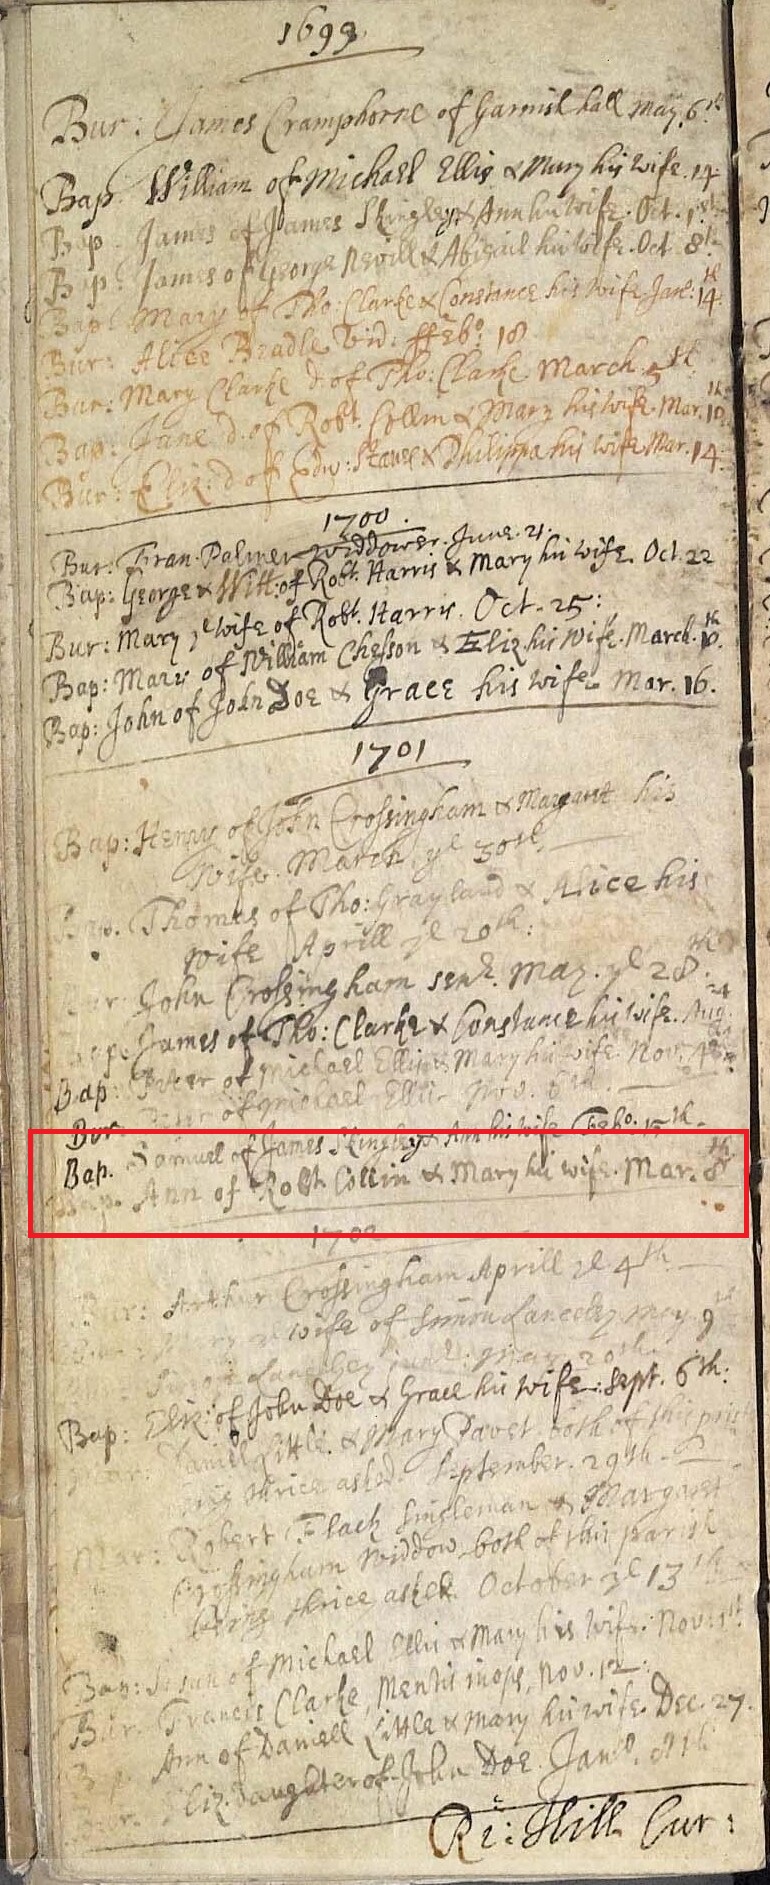 1699
Bur: James Cramphorne of Garnish hall May. 6th
Bap: William of Michael Ellis & Mary his wife. 14
Bap: James of James Skingley & Ann his wife. Oct. 1st
Bap: James of George Nevill & Abigail his wife. Oct 8th
Bap: Mary of Tho: Clarke & Constance his wife Jan: 14th
Bur: Alice Beadle Vid: ffeb: 18
Bur: Mary Clarke d. of Tho: Clarke March. 5th
Bap: Jane d. of Robt. Collin & Mary his wife. Mar. 10th
Bur: Eliz: d of Edw: & Philippa his wife Mar. 14
1700.
Bur: Fran. Palmer widdower. June. 21.
Bap: George & Will: of Robt. Harris & Mary his wife. Oct. 22
Bur: Mary ye wife of Robt. Harris. Oct. 25:
Bap: Mary of William Chesson & Eliz his wife. March. th
Bap: John of John Doe & Grace his wife. Mar. 16.
1701
Bap: Henry of John Crossingham & Margaret his
wife. March ye 30th.
Bap. Thomas of Tho: Grayland & Alice his
wife Aprill ye 20th:
Bur John Crossingham senr. May. ye 28th.
Bap. James of Tho: Clarke & Constance his wife. Aug. 24
Bap: Peter of Michael Ellis & Mary his wife. Nov. 4th
Bur. Peter of Michael Ellis Nov. 6th.
Bap. Samuel of James Skingley & Ann his wife Feb: 15th.
Bap. Ann of Robt. Collin & Mary his wife. Mar. 8th
1702
Bur: Arthur Crossingham Aprill ye 4th.
Mary ye wife of Simon Lanceley May. 9th
Simon Lanceley May 20th
Bap: Eliz: of John Doe & Grace his wife: Sept. 6th:
Mar. Daniell Little & Mary both of this
being thrice asked. September. 29th.
Mar: Robert Flack Singleman & Margaret
Crossingham Widdow both of this parish
being thrice asked. October ye 13th
Bap: Susan of Michael Ellis & Mary his wife: Nov: 1st
Bur. Francis Clarke, Mentis inops, Nov. 12:
Bap. Ann of Daniell Little & Mary his wife. Dec. 27.
Bur. Eliz. daughter of John Doe. Jan.
Ri: Hill Cur: